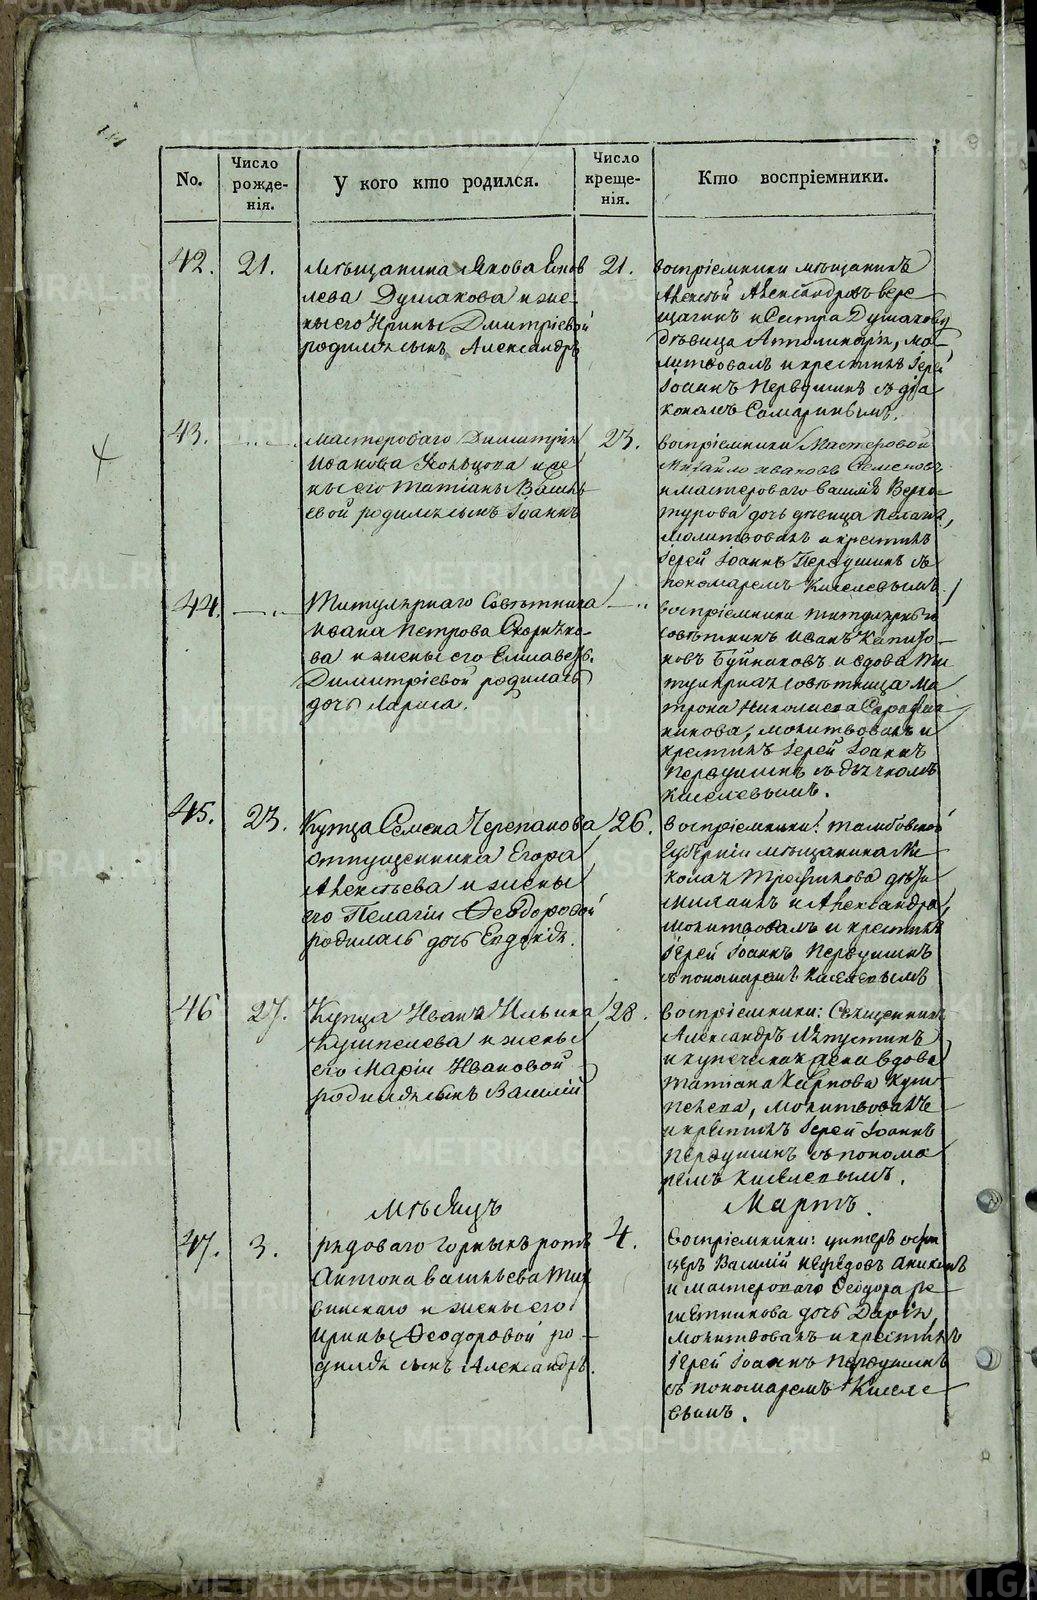 No.
Число рожде-нія.
У кого кто родился.
Число креще-нія.
Кто воспріемники.
42. 21.
мѣщанина Якова
лева Душакова и же-
ны его Ирины Дмитріевой
родился сынъ Александръ
21.
воспріемники мѣщанинъ
Алексѣй Александровъ Вере
щагинъ и Сестра Душакова
дѣвица Апполинарія, мо-
литвовалъ и крестилъ Іерей
Іоаннъ Первушинъ съ діа
кономъ Самаринымъ.
43.
мастероваго Димитрія
Иванова Кольцова и же
ны его Татіаны Василь
евой родился сынъ Іоаннъ
23.
воспріемники Мастеровой
Михайло Ивановъ Семеновъ
и мастероваго Василія Верхо
турова дочь дѣвица Пелагія,
молитвовалъ и крестилъ
Іерей Іоаннъ Первушинъ съ
пономаремъ Киселевымъ.
44. — „
Титулярнаго Совѣтника
Ивана Петрова Скорня­ко-
ва и жены его Елисавет.
Димитріевой родилась
дочь Лариса.
— „
воспріемники титулярный
совѣтникъ Иванъ
новъ Буйносовъ и вдова ти
тулярная совѣтница Ма
трона Николаева
никова, молитвовалъ и
крестилъ Іерей Іоаннъ
Первушинъ съ дьячкомъ
Киселевымъ.
45. 23.
Купца Семена Черепанова
отпущенника Егора
Алексѣева и жены
его Пелагіи Ѳеодоровой
родилась дочь Евдокія.
26.
воспріемники: тамбовской
Губерніи мѣщанина Ни
колая Трофимова дѣти
и Александра,
молитвовалъ и крестилъ
Іерей Іоаннъ Первушинъ
съ пономаремъ Киселевымъ
46 27.
Купца Ивана Ильина
Кушпелева и жены
его Маріи Ивановой
родился сынъ Василій
28.
воспріемники: Священникъ
Александръ Ляпустинъ
и купеческая жена вдова
Татіана Карпова Куш-
пелева, молитвовалъ
и крестилъ Іерей Іоаннъ
Первушинъ съ понома
ремъ Киселевымъ.
Мѣсяцъ Мартъ.
47. 3.
рядоваго горныхъ ротъ
Антона Васильева Тих
винскаго и жены его
Ирины Ѳеодоровой ро-
дился сынъ Александръ.
4.
воспріемники: унтеръ офи
церъ Василій Нефедовъ Аникинъ
и мастероваго Ѳеодора Ре
шетникова дочь Дарія,
молитвовалъ и крестилъ
Іерей Іоаннъ Первушинъ
съ пономаремъ Киселе
вымъ.
METRIKI.GASO-URAL.RU